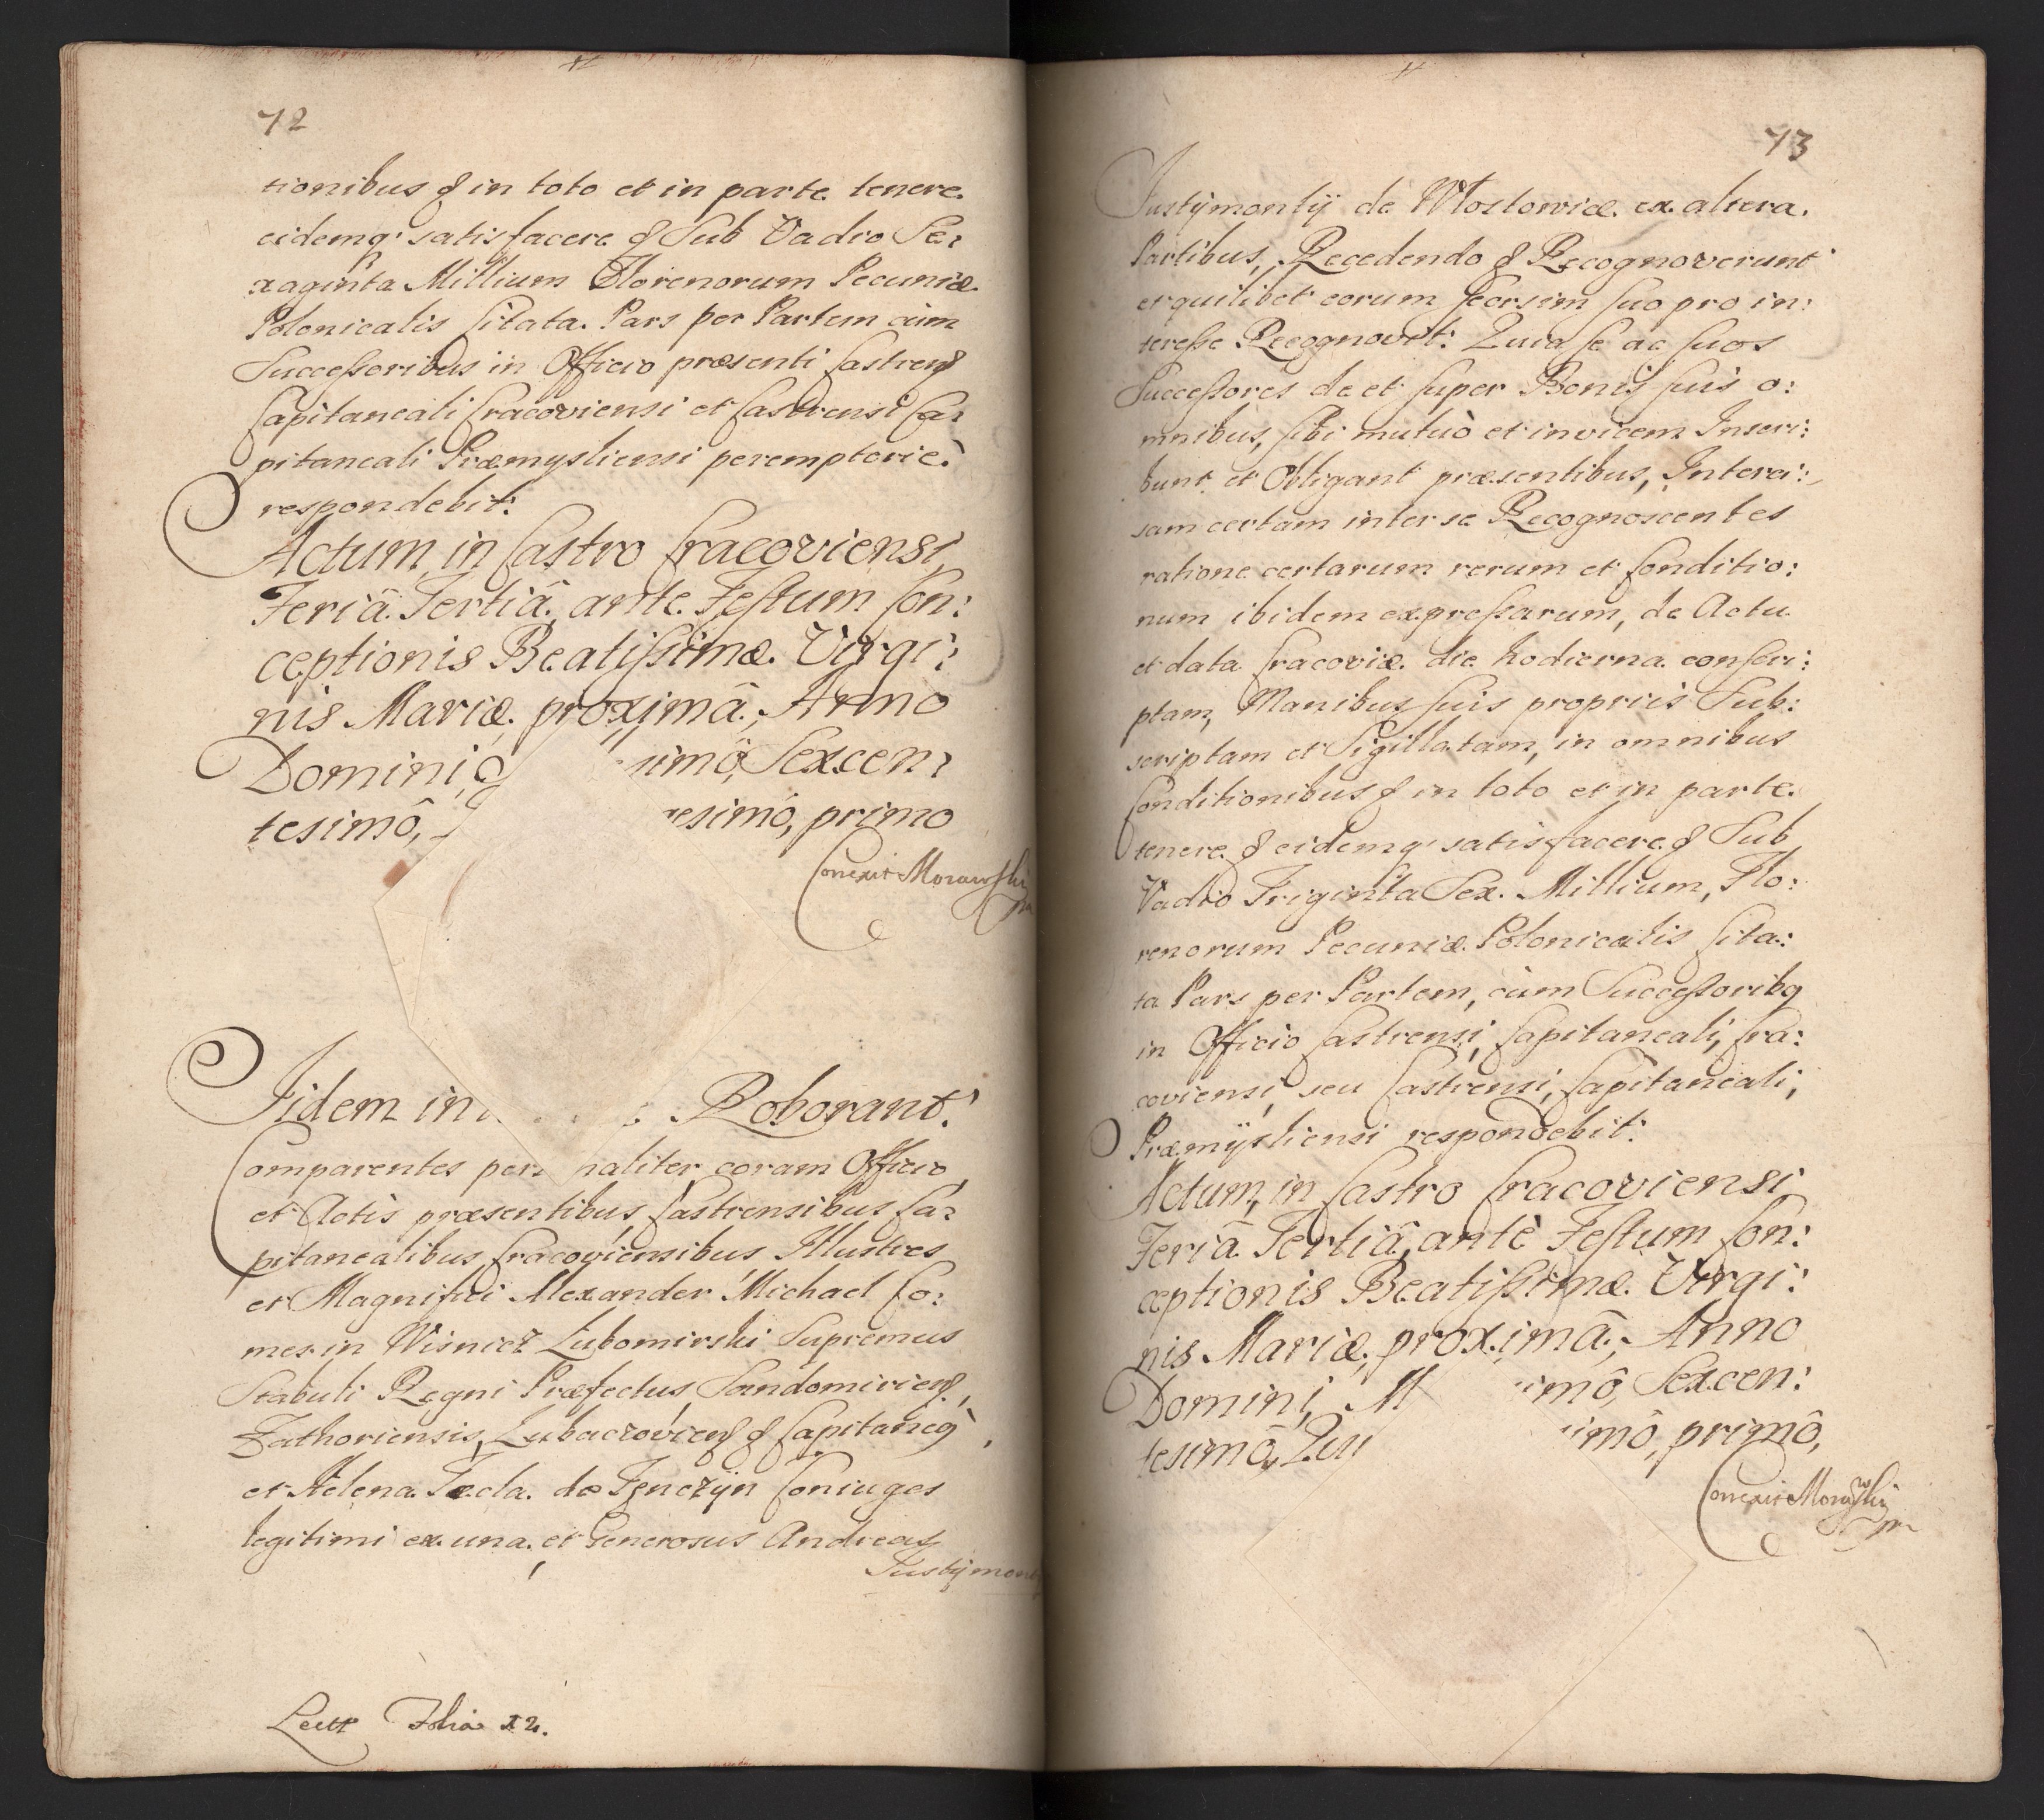 72
tionibus & in toto et in parte tenere
eidemq' satisfacere & Sub Vadio Se:
xaginta Millium Florenorum Pecuniæ
Polonicalis Citata Pars per Partem cùm
Successoribus in Officio præsenti Castren&
Capitaneali Cracoviensi et Castrensi Ca:
pitaneali Præmysliensi peremptorie
respondebit.
Actum in Castro Cracoviensi,
Feriâ Tertiâ, ante Festum Con:
ceptionis Beatissimæ Virgi:
nis Mariæ proximâ, Anno
Domini, imô, Sexcen:
tesimô, esimô, primo
Correxit Morawski
mp
Iidem in Roborant.
Comparentes personaliter coram Officio
et Actis præsentibus Castrensibus Ca:
pitanealibus Cracoviensibus Illustres
et Magnifici Alexander Michael Co:
mes in Wisnicz Lubomirski Supremus
Stabuli Regni Præfectus, Sandomirien&,
Zathoriensis, Lubaczovien& & Capitaneq,
et Helena Tecla de Tenczÿn Coniuges
legitimi ex una, et Generosus Andreas
Justÿmont
Lect Folia 12.
73
Justÿmontÿ de Wlostowicæ ex altera
Partibus, Recedendo & Recognoverunt
et quilibet eorum seorsim suo pro in:
teresse Recognovit: Quia se ac suos
Successores de et super Bonis suis o:
mnibus, sibi mutuò et invicem Inscri:
bunt et Obligant præsentibus, Interci:
sam certam inter se Recognoscentes
ratione certarum rerum et Conditio:
num ibidem expressarum, de Actu
et data Cracoviæ die hodierna conscri:
ptam, Manibus suis propriis Sub:
scriptam et Sigillatam, in omnibus
Conditionibus & in toto et in parte
tenere & eidemq' satisfacere & Sub
Vadio Triginta Sex Millium, Flo:
renorum Pecuniæ Polonicalis Cita:
ta Pars per Partem, cùm Successoribq
in Officio Castrensi, Capitaneali, Cra:
coviensi, seu Castrensi, Capitaneali,
Præmÿsliensi respondebit.
Actum, in Castro Cracoviensi
Feriâ Tertiâ, antè Festum Con:
ceptionis Beatissimæ Virgi:
nis Mariæ, proximâ, Anno
Domini, M imô, Sexcen:
tesimô, Qu imô, primô,
Correxit Morawski
mp